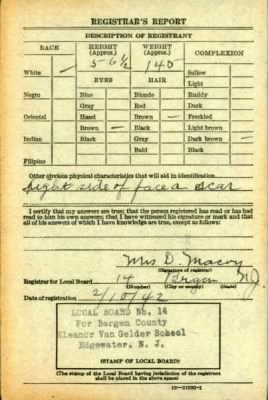 REGISTRAR'S REPORT
DESCRIPTION OF REGISTRANT
RACE HEIGHT (Approx.) WEIGHT (Approx.) COMPLEXION
5-6 1/2 140
White — Sallow
EYES HAIR Light
Negro Blue Blonde Ruddy
Gray Red Dark
Oriental Hazel Brown — Freckled
Brown — Black Light brown
Indian Black Gray Dark brown —
Bald Black
Filipino
Other obvious physical characteristics that will aid in identification
right side of face a scar
I certify that my answers are true; that the person registered has read or has had
read to him his own answers; that I have witnessed his signature or mark and that
all of his answers of which I have knowledge are true, except as follows:
Mrs D. Macoy
(Signature of registrar)
Registrar for Local Board 14 Bergen N.J.
(Number) (City or county) (State)
Date of registration 2/10/42
LOCAL BOARD No. 14
For Bergen County
Eleanor Van Gelder School
Edgewater, N. J.
(STAMP OF LOCAL BOARD)
(The stamp of the Local Board having jurisdiction of the registrant
shall be placed in the above space)